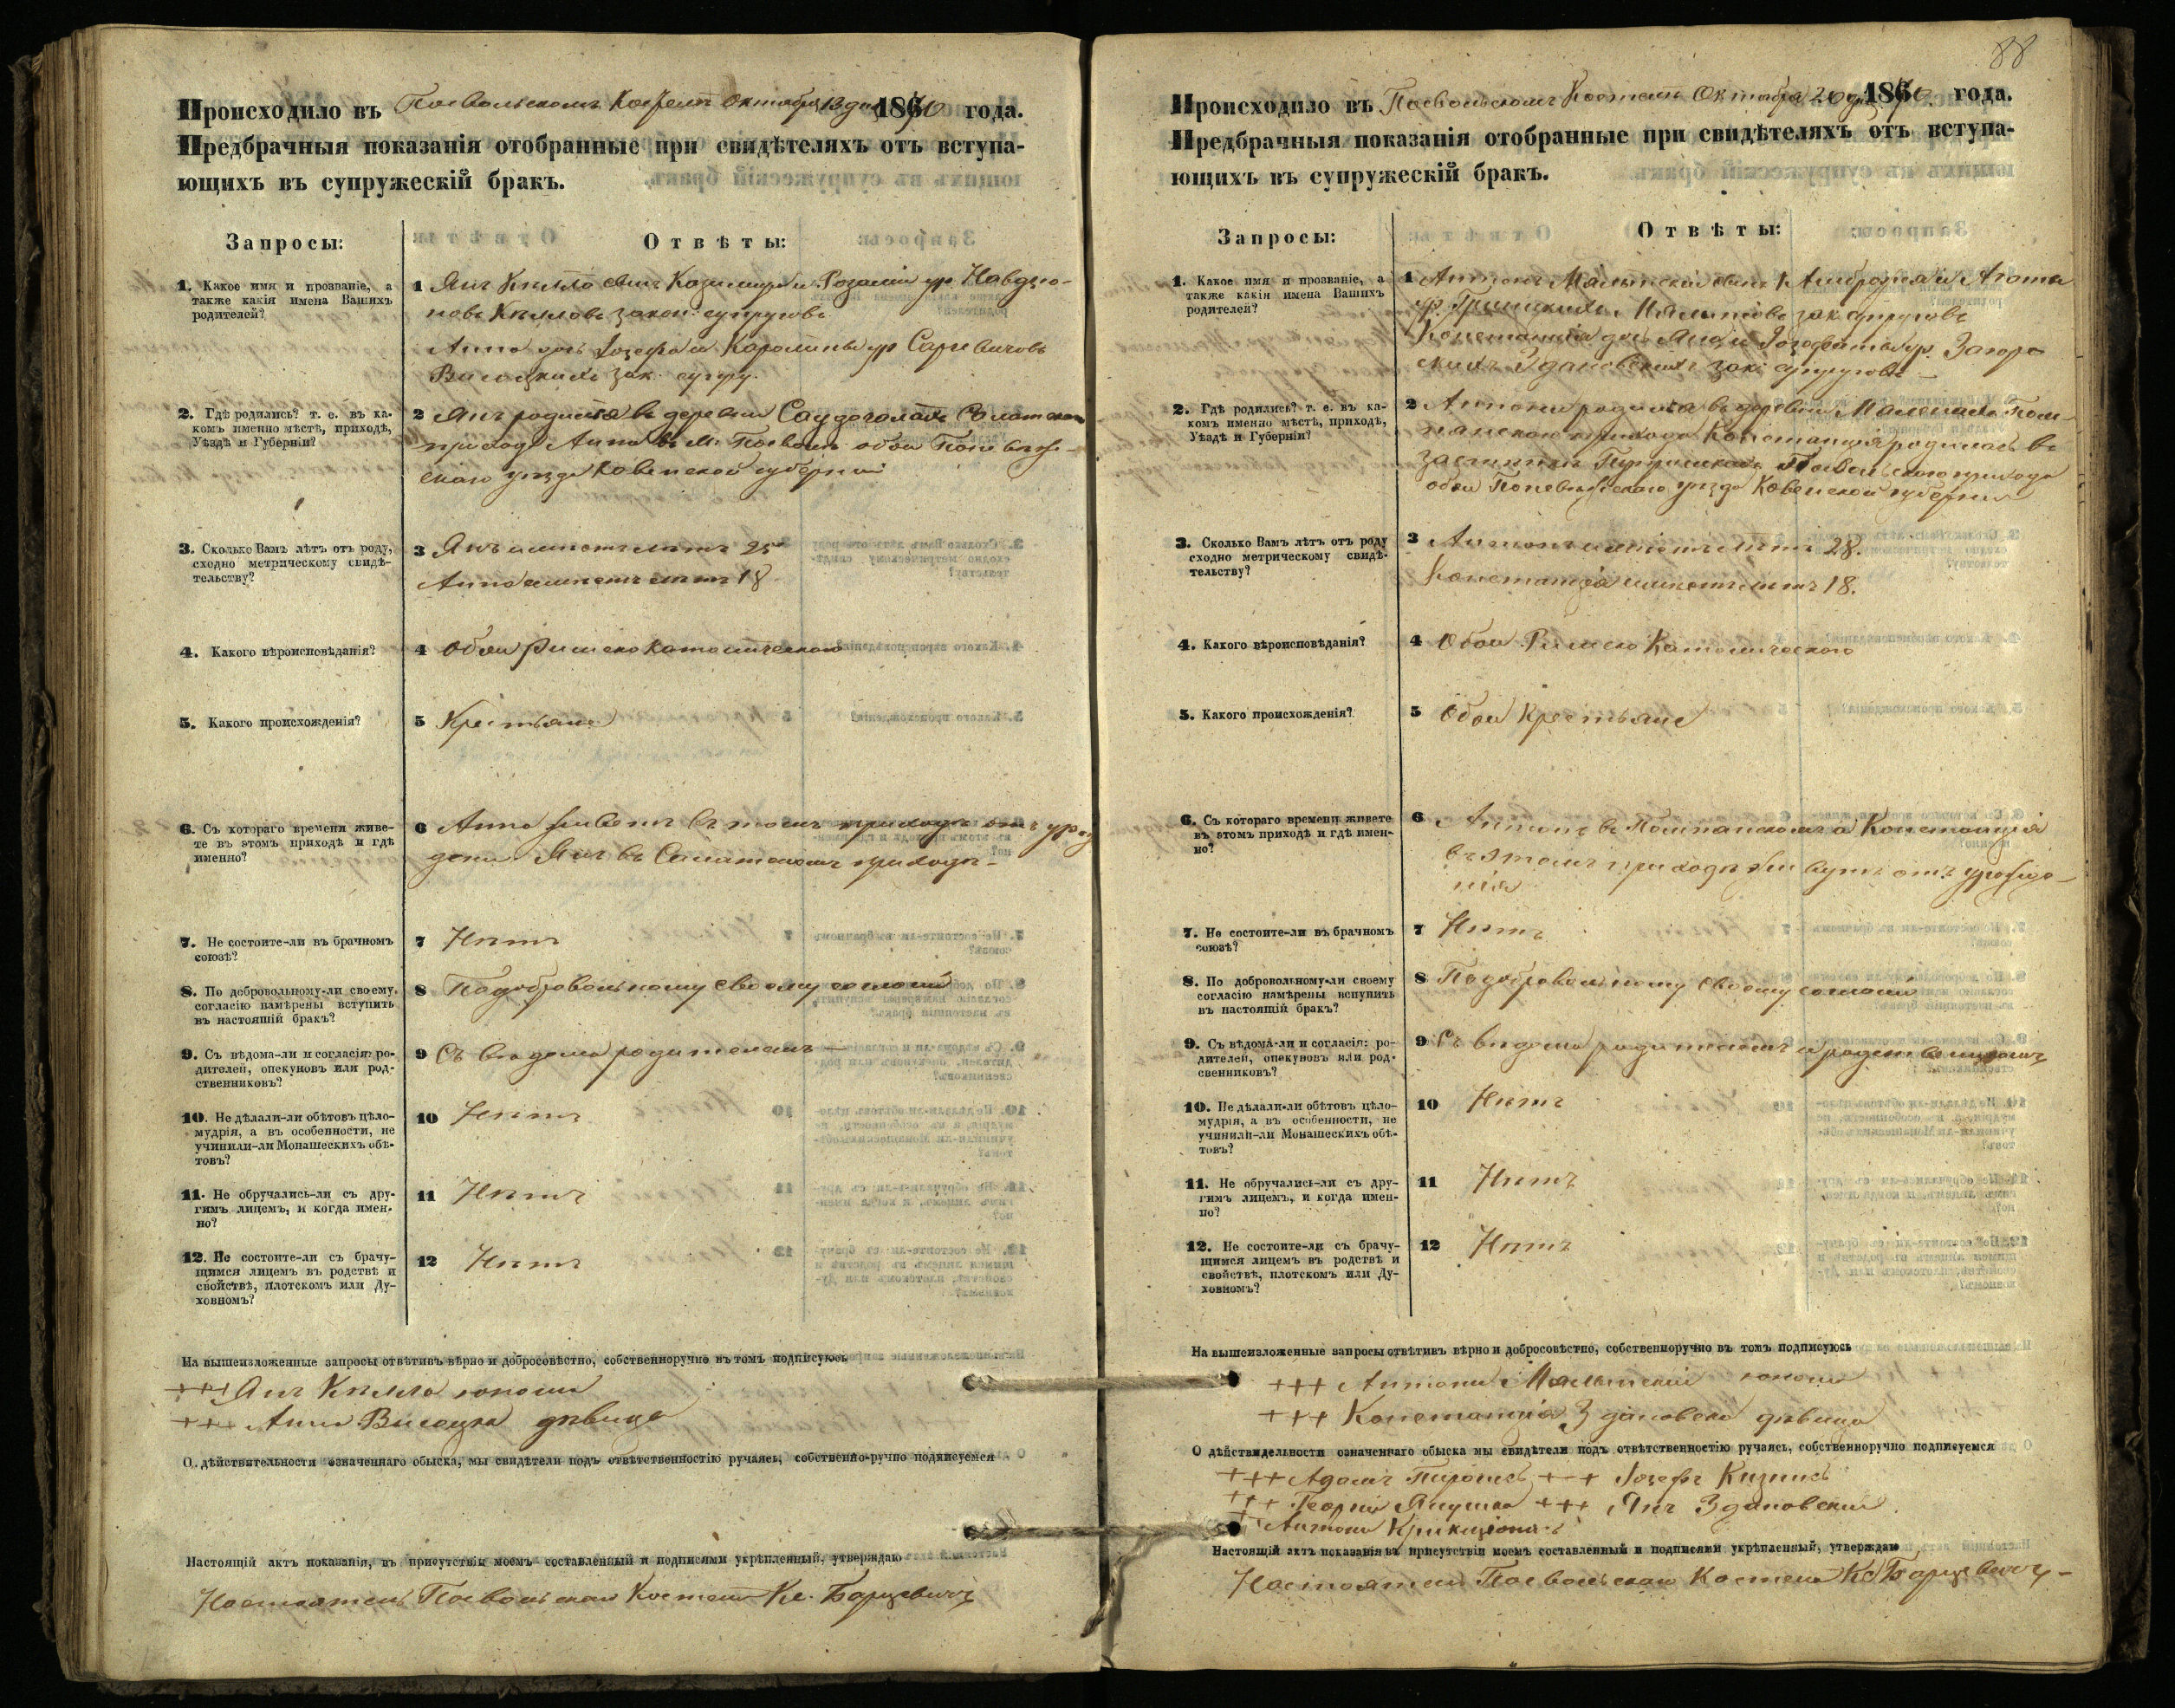 Происходило въ Посвольскомъ Костелѣ Октября 13 дня 1870 года.
Предбрачныя показанія отобранные при свидѣтеляхъ отъ вступа-
ющихъ въ супружескій бракъ.
Запросы:
Отвѣты:
1. Какое имя и прозваніе, а
также какія имена Вашихъ
родителей?
1 Янъ Кылло сынъ Казимира и Розаліи ур.
законъ супруговъ
Анна дочь Іозефа и Каролины ур
зак. супру.
2. Гдѣ родились? т. е. въ ка-
комъ именно мѣстѣ, приходѣ,
Уѣздѣ и Губерніи?
2 Янъ родился въ деревни
прихода Анна въ м. Посволѣ обои Поневѣж-
скаго уѣзда Ковенской губерніи
3. Сколько Вамъ лѣтъ отъ роду,
сходно метрическому свидѣ-
тельству?
3 Янъ имѣетъ лѣтъ 25
Анна имѣетъ лѣтъ 18
4. Какого вѣроисповѣданія?
4 Обои Римско Католическаго
5. Какого происхожденія?
5 Крестьяне
6. Съ хотораго времени живе-
те въ этомъ приходѣ и гдѣ
именно?
6 Анна живетъ въ томъ приходѣ отъ урож
дені Янъ въ Салатскомъ приходѣ-
7. Не состоите-ли въ брачномъ
союзѣ?
7 Нѣтъ
8. По добровольному-ли своему
согласію намѣрены вступить
въ настоящій бракъ?
8 Подобровольному своему согласію
9. Съ вѣдома-ли и согласія: ро-
дителей, опекуновъ или род-
ственниковъ?
9 Съ вѣдома родителемъ —
10. Не дѣлали-ли обѣтовъ цѣло-
мудрія, а въ особенности, не
учинили-ли Монашескихъ обѣ-
товъ?
10 Нѣтъ
11. Не обручались-ли съ дру-
гимъ лицемъ, и когда имен-
но?
11 Нѣтъ
12. Не состоите-ли съ брачу-
щимся лицемъ въ родствѣ и
свойствѣ, плотскомъ или Ду-
ховномъ?
12 Нѣтъ
На вышеизложенные запросы отвѣтивъ вѣрно и добросовѣстно, собственноручно въ томъ подписуюсь
+++ Янъ Кылло юноша
+++ Анна Высоцка дѣвица
О дѣйствительности означеннаго обыска, мы свидѣтели подъ отвѣтственностію ручаясь, собственно-ручно подписуемся
Настоящій актъ показанія, въ присутствіи моемъ составленный и подписями укрѣпленный, утверждаю
Настоятель Посвольскаго Костела Кс. Барцевичъ
88
Происходило въ Посвольскомъ Костелѣ Октября 20 дня 1870. года.
Предбрачныя показанія отобранные при свидѣтеляхъ отъ вступа-
ющихъ въ супружескій бракъ.
Запросы:
Отвѣты:
1. Какое имя и прозваніе, а
также какія имена Вашихъ
родителей?
1 Антонъ сынъ Амброжія и Агаты
ур. зак супруговъ
Констанція дочь Яна и Іозофаты ур. Загор-
скихъ Здановскихъ зак: супруговъ —
2. Гдѣ родились? т. е. въ ка-
комъ именно мѣстѣ, приходѣ,
Уѣздѣ и Губерніи?
2 Антони родился въ деревни
прихода Констанція родилась въ
застѣнки Посвольскаго прихода
обои Поневѣжскаго уѣзда Ковенской губерніи
3. Сколько Вамъ лѣтъ отъ роду
сходно метрическому свидѣ-
тельству?
3 Антонъ имѣетъ лѣтъ 28.
Констанція имѣетъ лѣтъ 18.
4. Какого вѣроисповѣданія?
4 Обои Римско Католическаго
5. Какого происхожденія?
5 Обои Крестьяне
6. Съ котораго времени живете
въ этомъ приходѣ и гдѣ имен-
но?
6 Антонъ въ а Констанція
въ этомъ приходѣ живутъ отъ урожде-
нія
7. Не состоите-ли въ брачномъ
союзѣ?
7 Нѣтъ
8. По добровольному-ли своему
согласію намѣрены вспупить
въ настоящій бракъ?
8 Подобровольному своему согласію
9. Съ вѣдома-ли и согласія: ро-
дителей, опекуновъ или род-
свенниковъ?
9 Съ вѣдома родителемъ и родственникомъ
10. Не дѣлали-ли обѣтовъ цѣло-
мудрія, а въ особенности, не
учинили-ли Монашескихъ обѣ-
товъ?
10 Нѣтъ
11. Не обручались-ли съ дру-
гимъ лицемъ, и когда имен-
но?
11 Нѣтъ
12. Не состоите-ли съ брачу-
щимся лицемъ въ родствѣ и
свойствѣ, плотскомъ или Ду-
ховномъ?
12 Нѣтъ
На вышеизложенные запросы отвѣтивъ вѣрно и добросовѣстно, собственноручно въ томъ подписуюсь
+++ Антони юноша
+++ Констанція Здановска дѣвица
О дѣйствидельности означеннаго обыска мы свидѣтели подъ отвѣтственностію ручаясь, собственноручно подписуемся
+++ Адамъ +++ Іозефъ
+++ Георгій +++ Янъ Здановскій
+++ Антони
Настоящій актъ показанія въ присутствіи моемъ составленный и подписями укрѣпленный, утверждаю
Настоятель Посвольскаго Костела Кс Барцевичъ-